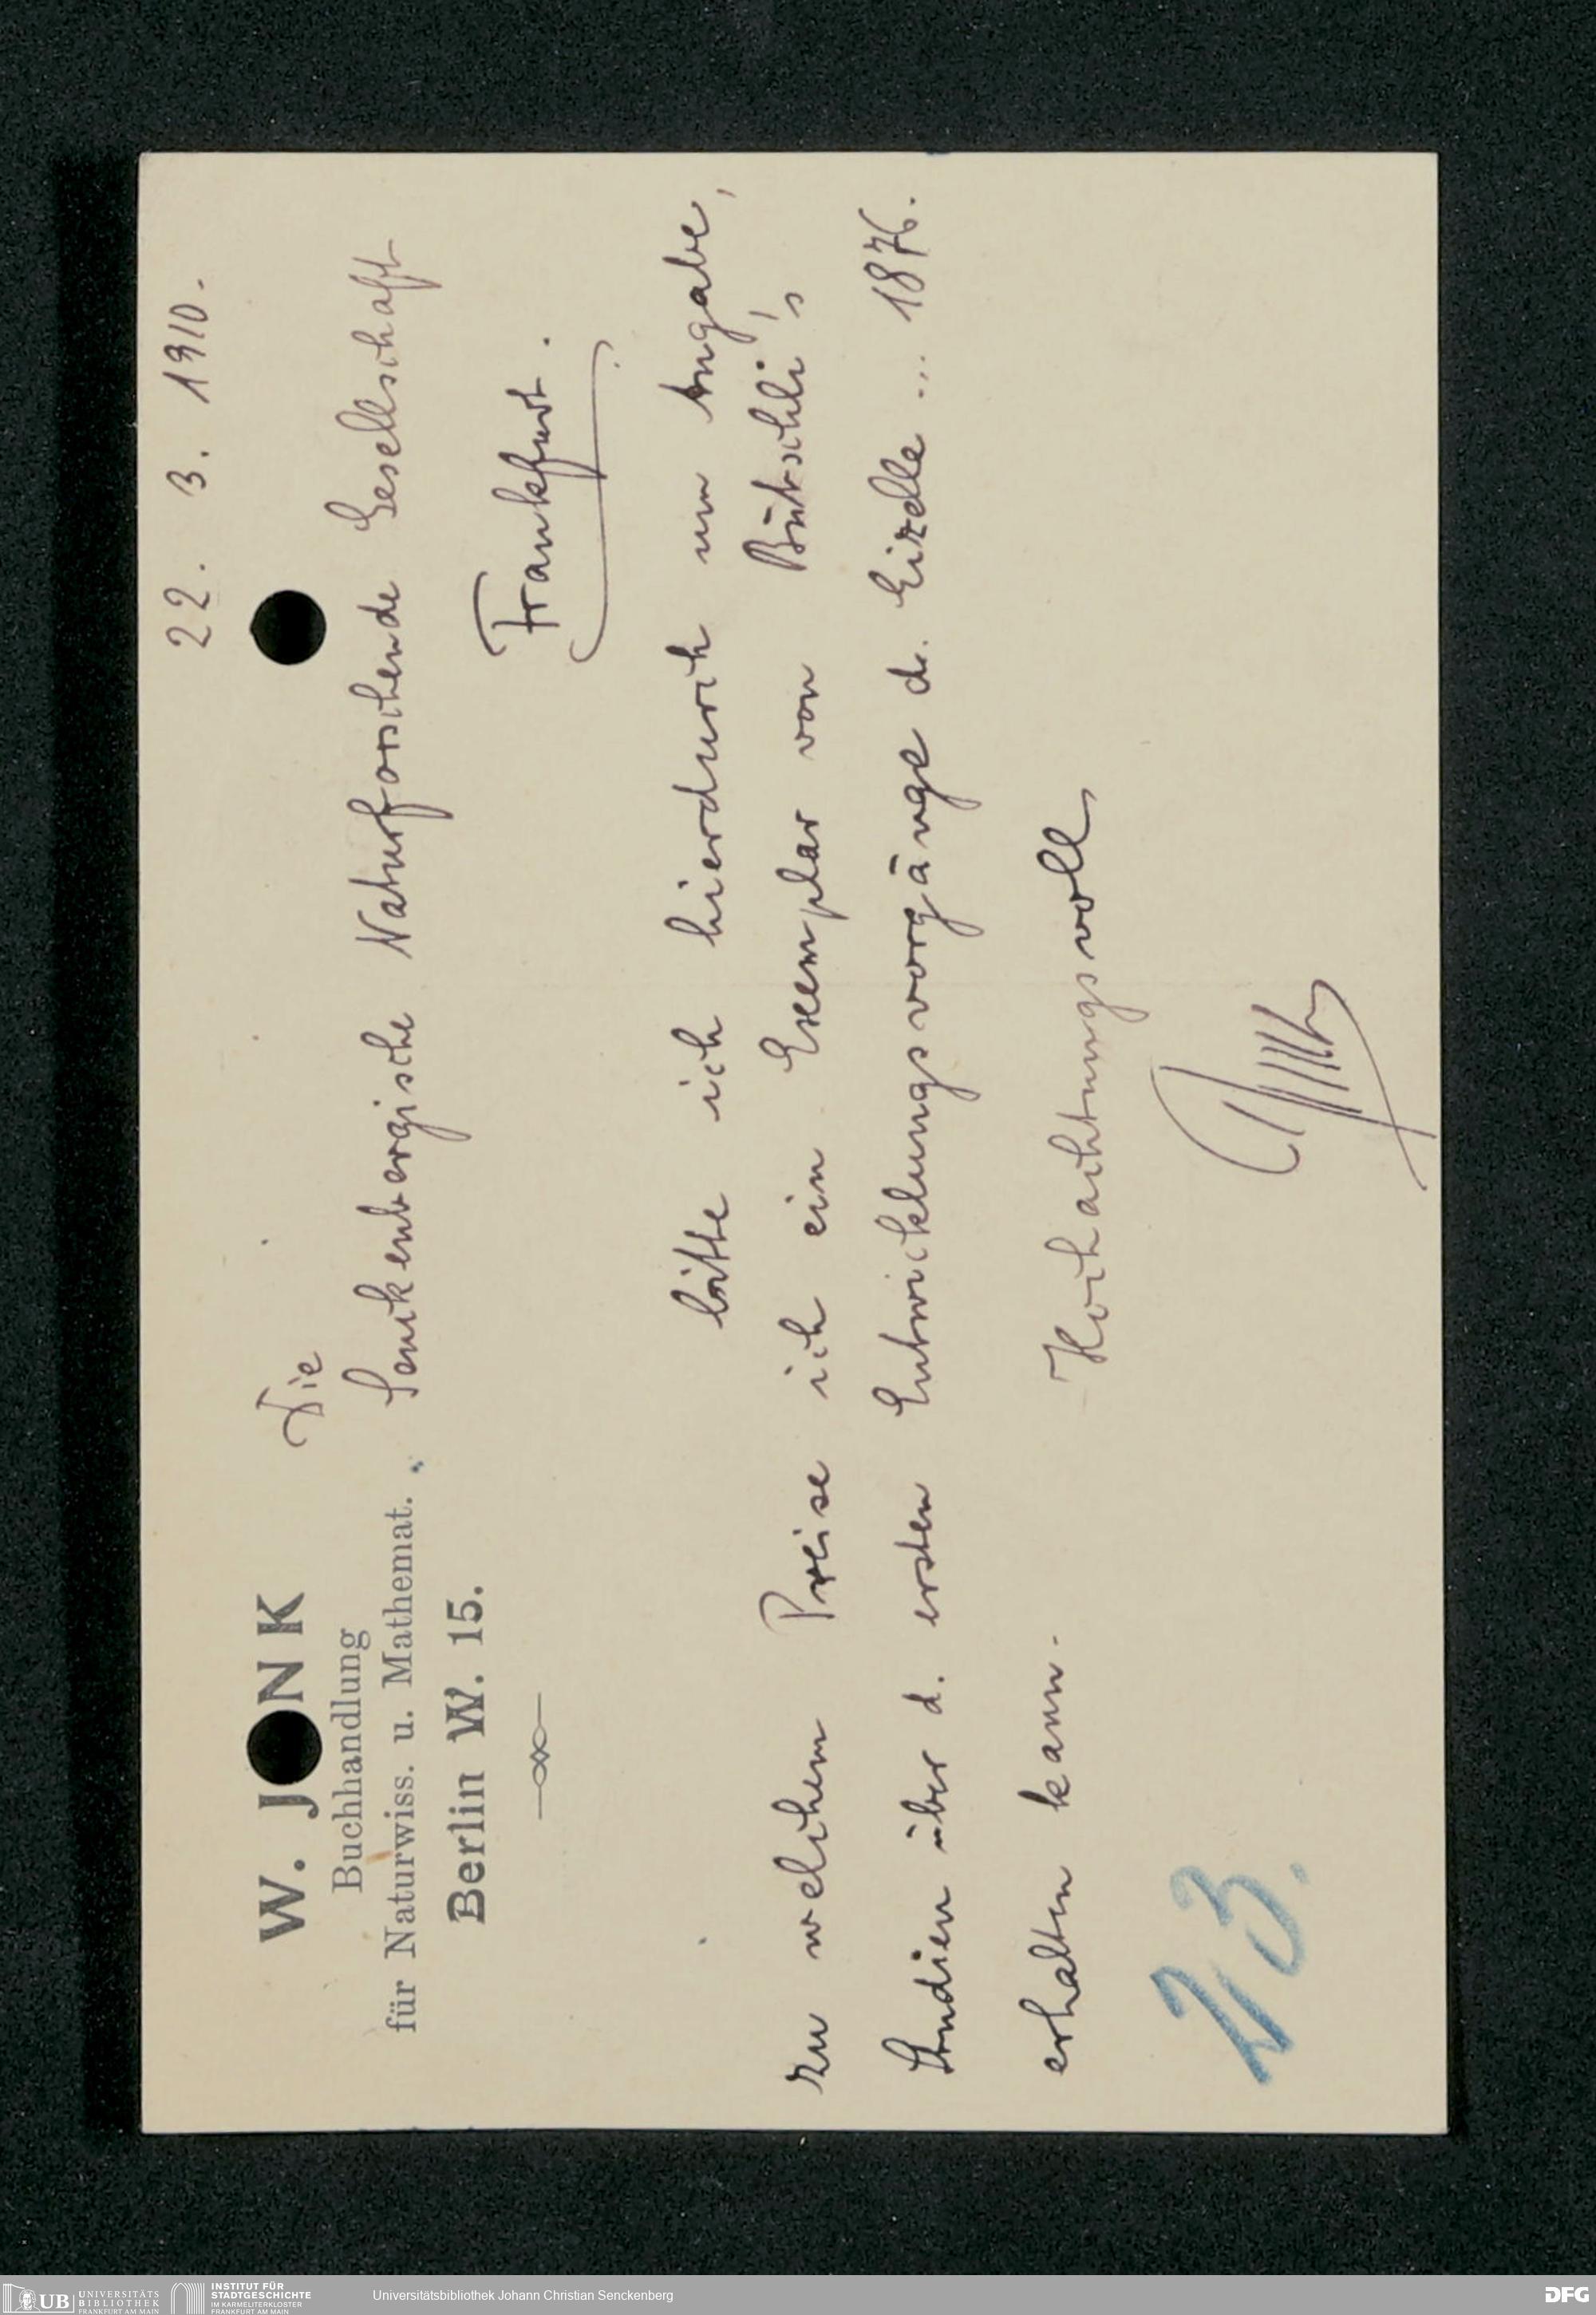 22. 3. 1910.
W. JUNK
Buchhandlung
für Naturwiss. u. Mathemat.
Berlin W. 15.
Die
Senckenbergische Naturforschende Gesellschaft
Frankfurt.
bitte ich hierdurch um Angabe,
zu welchem Preise ich ein Exemplar von Bütschli's
Studien über d. ersten Entwicklungsvorgänge d. Eizelle ... 1876.
erhalten kann.
Hochachtungsvoll
23.
UB UNIVERSITÄTS
BIBLIOTHEK
FRANKFURT AM MAIN
INSTITUT FÜR
STADTGESCHICHTE
IM KARMELITERKLOSTER
FRANKFURT AM MAIN
Universitätsbibliothek Johann Christian Senckenberg
DFG